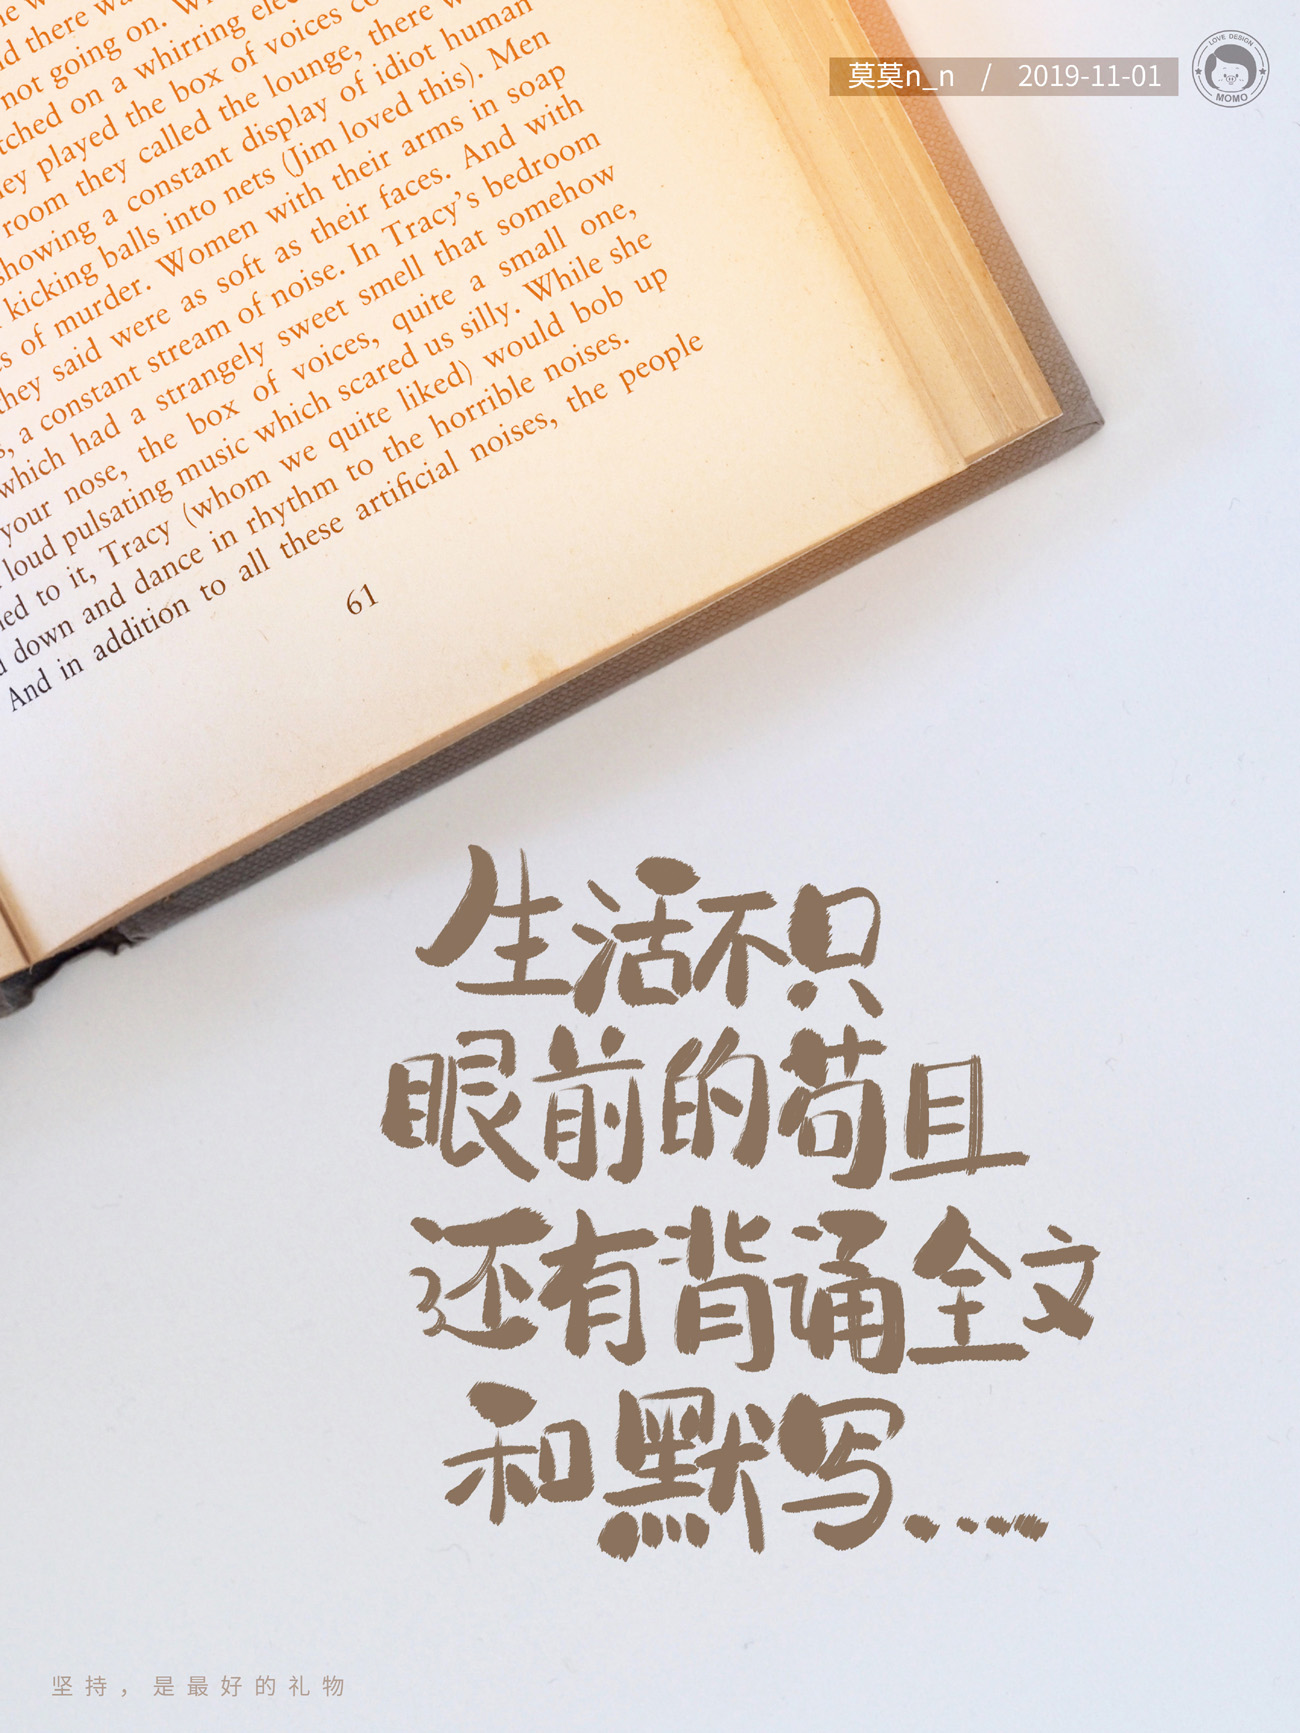 not going on.
tched on a whirring
ey played the box of voices
room they called the lounge, there
showing a constant display of idiot human
kicking balls into nets (Jim loved this). Men
s of murder. Women with their arms in soap
they said were as soft as their faces. And with
s, a constant stream of noise. In Tracy's bedroom
which had a strangely sweet smell that somehow
your nose, the box of voices, quite a small one,
loud pulsating music which scared us silly. While she
ned to it, Tracy (whom we quite liked) would bob up
down and dance in rhythm to the horrible noises.
And in addition to all these artificial noises, the people
61
莫莫n_n / 2019-11-01
LOVE DESIGN
MOMO
生活不只
眼前的苟且
还有背诵全文
和默写……
坚持，是最好的礼物